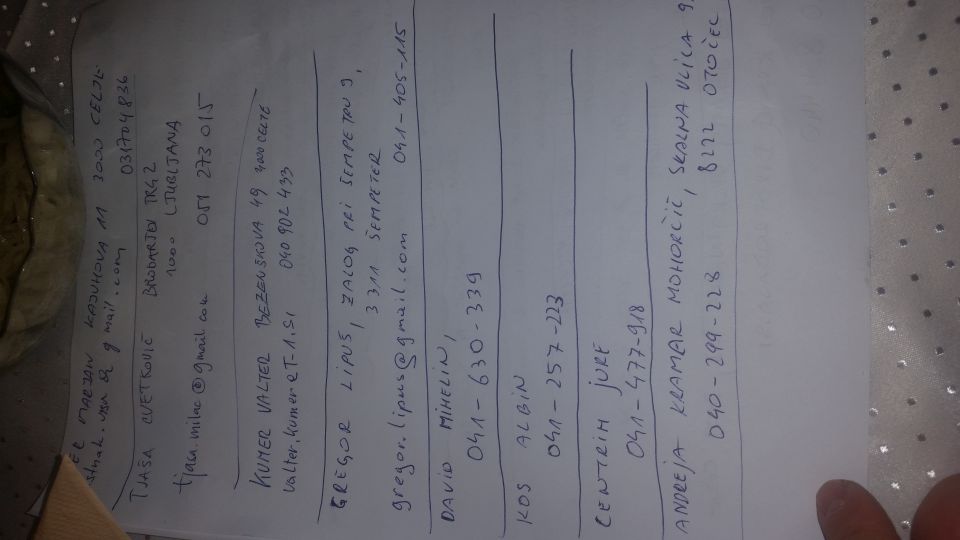 MARJAN KAJUHOVA 11 3000 CELJE
gmail.com 031704836
TJAŠA CVETKOVIČ BRODARJEV TRG 2
1000 LJUBLJANA
tjasa.milac@gmail.com 051 273 015
KUMER VALTER BEZENŠKOVA 49 3000 CELJE
valter.kumer@T-1.SI 040 902 433
GREGOR LIPUŠ, ZALOG PRI ŠEMPETRU 9,
3311 ŠEMPETER
gregor.lipus@gmail.com 041-405-115
DAVID MIHELIN,
041-630-339
KOS ALBIN
041-257-223
CENTRIH JURE
041-477-918
ANDREJA KRAMAR MOHORČIČ, SKALNA ULICA 9,
040-299-228 8222 OTOČEC